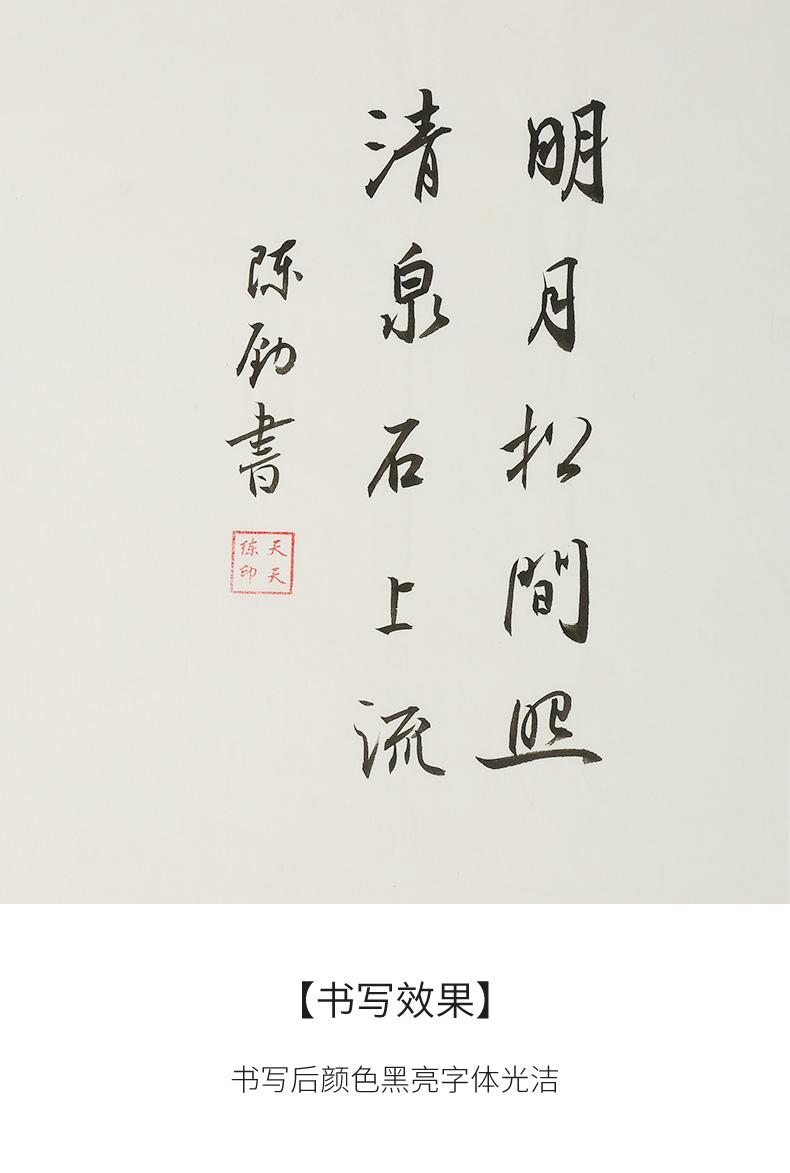 明月松間照
清泉石上流
陈劲書
天天
练印
【书写效果】
书写后颜色黑亮字体光洁